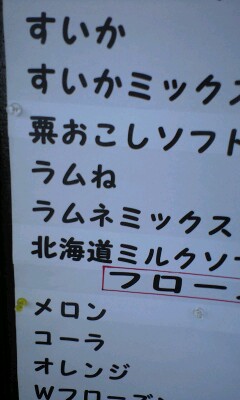 すいか
すいかミックス
粟おこしソフト
ラムね
ラムネミックス
北海道ミルクソフ
フロー
メロン
コーラ
オレンジ
Wフローズン